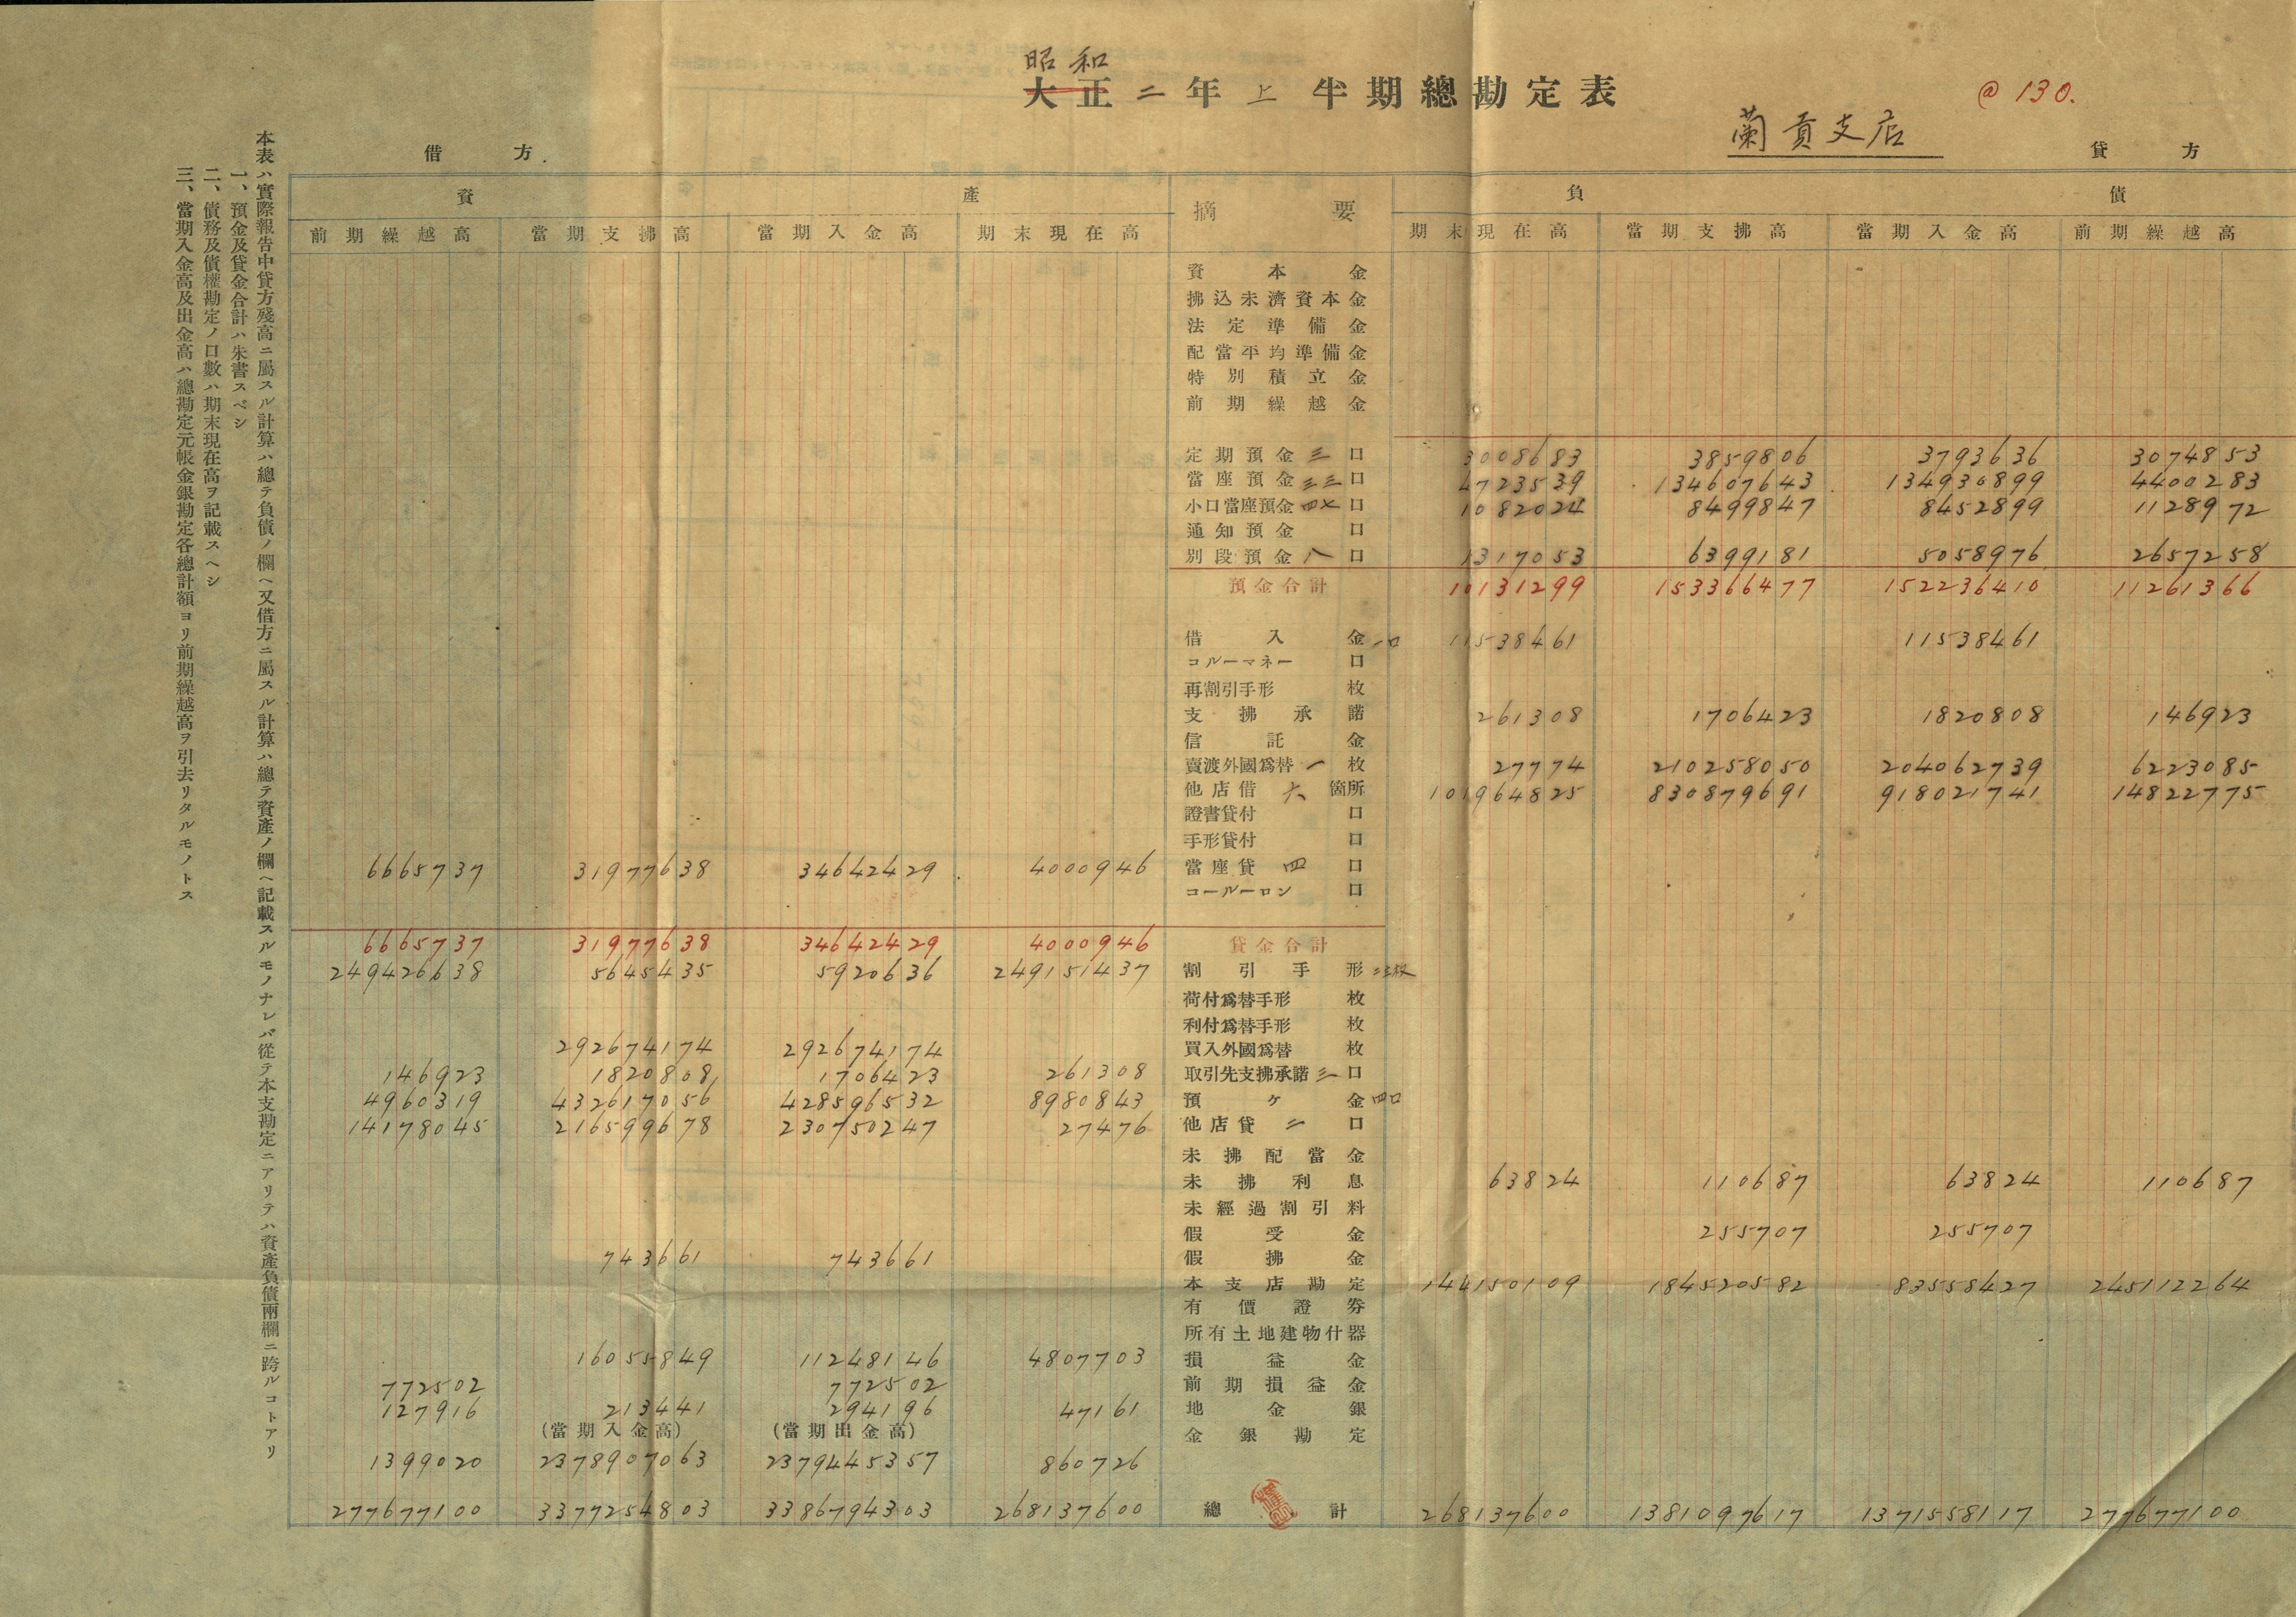 昭和
大正二年上半期總勘定表
@ 130.
蘭貢支店
借方 貸方
資產 摘要 負債
前期繰越高 當期支拂高 當期入金高 期末現在高 期末現在高 當期支拂高 當期入金高 前期繰越高
資本金
拂込未濟資本金
法定準備金
配當平均準備金
特別積立金
前期繰越金
定期預金 三 口 3008683 3859806 3793636 3074853
當座預金 三三 口 4723539 134607643 134930899 4400283
小口當座預金 四七 口 1082024 8499847 8452899 1128972
通知預金 口
別段預金 八 口 1317053 6399181 5058976 2657258
預金合計 10131299 153366477 152236410 11261366
借入金 一口 11538461 11538461
コールマネー 口
再割引手形 枚
支拂承諾 261308 1706423 1820808 146923
信託金
賣渡外國爲替 一 枚 27774 210258050 204062739 6223085
他店借 六 箇所 101964825 830879691 918021741 14822775
證書貸付 口
手形貸付 口
6665737 31977638 34642429 4000946 當座貸 四 口
コールーロン 口
6665737 31977638 34642429 4000946 貸金合計
249426638 5645435 5920636 249151437 割引手形 二三枚
荷付爲替手形 枚
利付爲替手形 枚
292674174 292674174 買入外國爲替 枚
146923 1820808 1706423 261308 取引先支拂承諾 三 口
4960319 432617056 428596532 8980843 預ケ金 四口
14178045 216599678 230750247 27476 他店貸 二 口
未拂配當金
未拂利息 63824 110687 63824 110687
未經過割引料
假受金 255707 255707
743661 743661 假拂金
本支店勘定 144150109 184520582 83558427 245112264
有價證券
所有土地建物什器
16055849 11248146 4807703 損益金
772502 772502 前期損益金
127916 213441 294196 47161 地金銀
(當期入金高) (當期出金高) 金銀勘定
1399020 2378907063 2379445357 860726
277677100 3377254803 3386794303 268137600 總計 268137600 1381097617 1371558117 277677100
本表ハ實際報告中貸方殘高ニ屬スル計算ハ總テ負債ノ欄ヘ又借方ニ屬スル計算ハ總テ資產ノ欄ヘ記載スルモノナレバ從テ本支勘定ニアリテハ資產負債兩欄ニ跨ルコトアリ
一、預金及貸金合計ハ朱書スベシ
二、債務及債權勘定ノ口數ハ期末現在高ヲ記載スヘシ
三、當期入金高及出金高ハ總勘定元帳金銀勘定各總計額ヨリ前期繰越高ヲ引去リタルモノトス